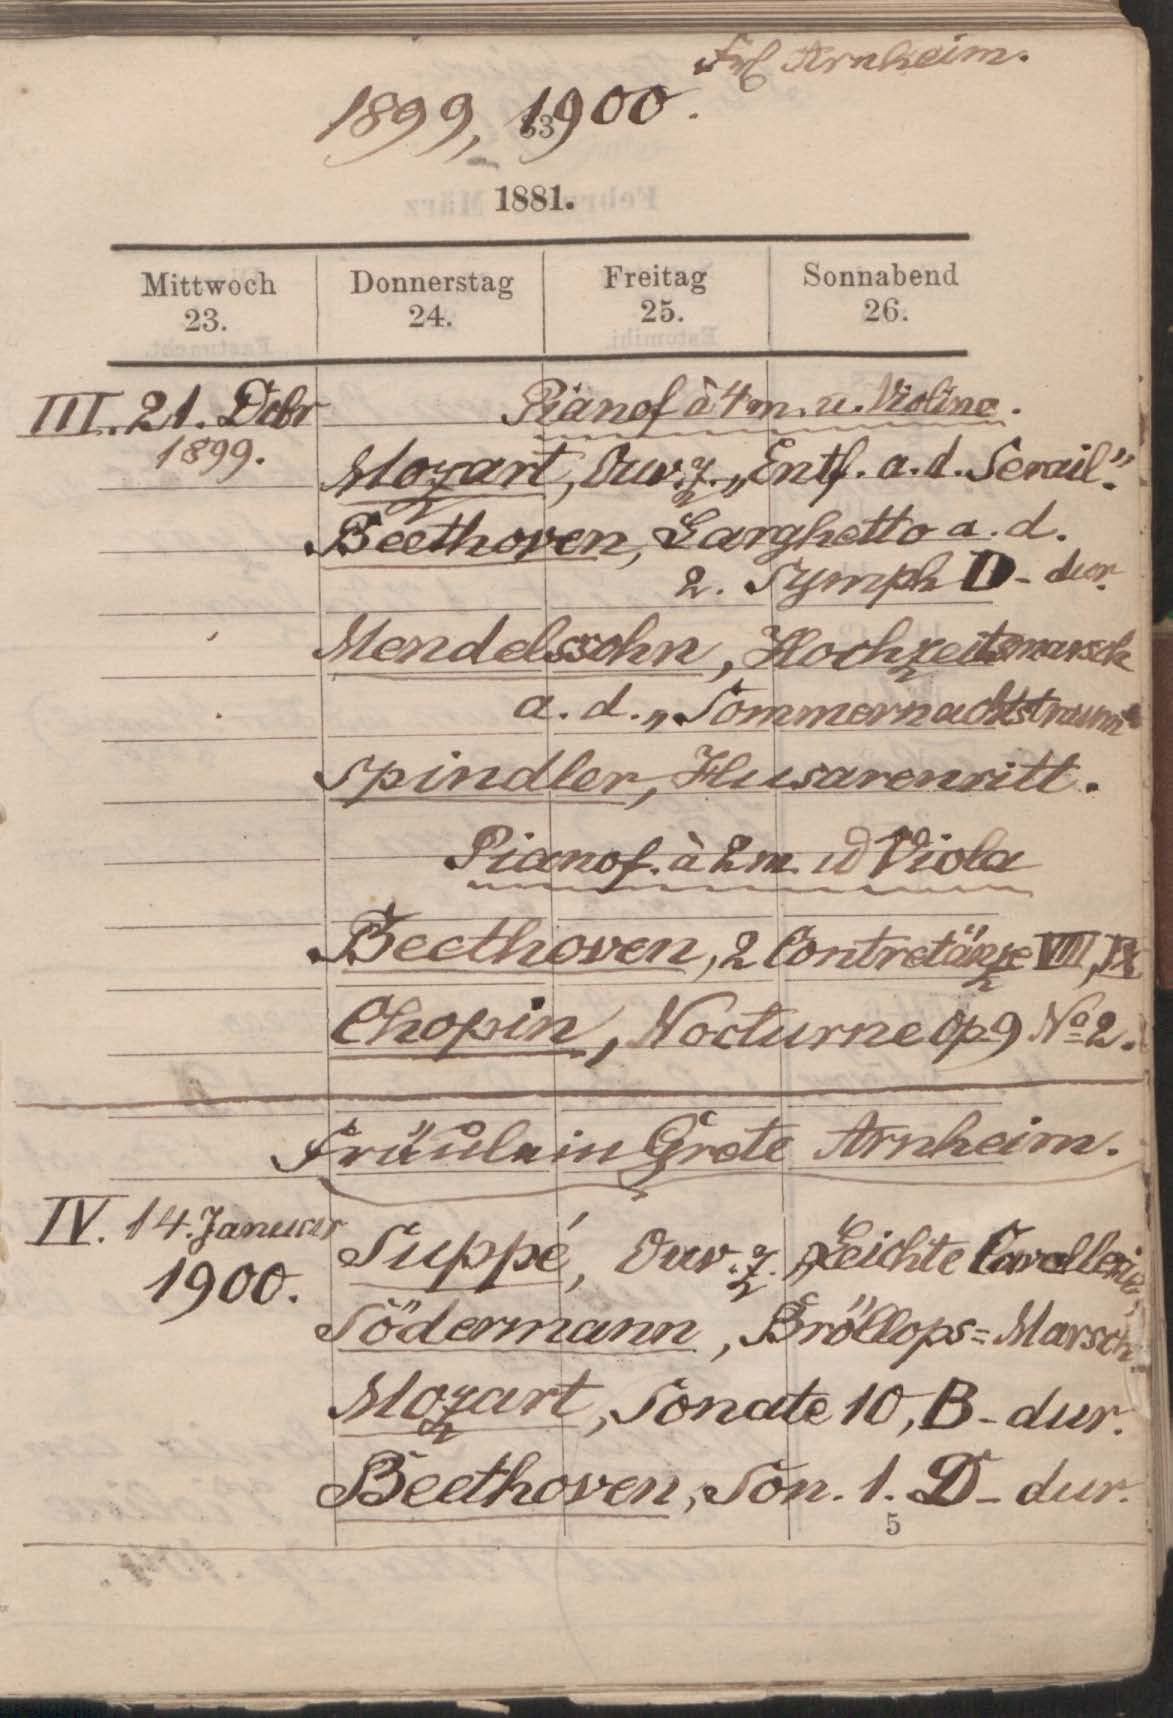 Frl Arnheim.
1899, 1900.
33
1881.
Mittwoch Donnerstag Freitag Sonnabend
23. 24. 25. 26.
III. 21. Debr Pianof à 4 m. u. Violine.
1899.
Mozart, Ouv. z. „Entf. a. d. Serail".
Beethoven, Larghetto a. d.
2. Symph D-dur.
Mendelssohn, Hochzeitsmarsch
a. d. „Sommernachtstraum"
Spindler, Husarenritt.
Pianof. à 2 m. u Viola
Beethoven, 2 Contretänze VIII, IX
Chopin, Nocturne op 9 No 2.
Fräulein Grete Arnheim.
IV. 14. Januar
1900.
Suppé, Ouv. z. „Leichte Cavallerie"
Södermann, Bröllops=Marsch
Mozart, Sonate 10, B-dur.
Beethoven, Son. 1. D-dur.
5